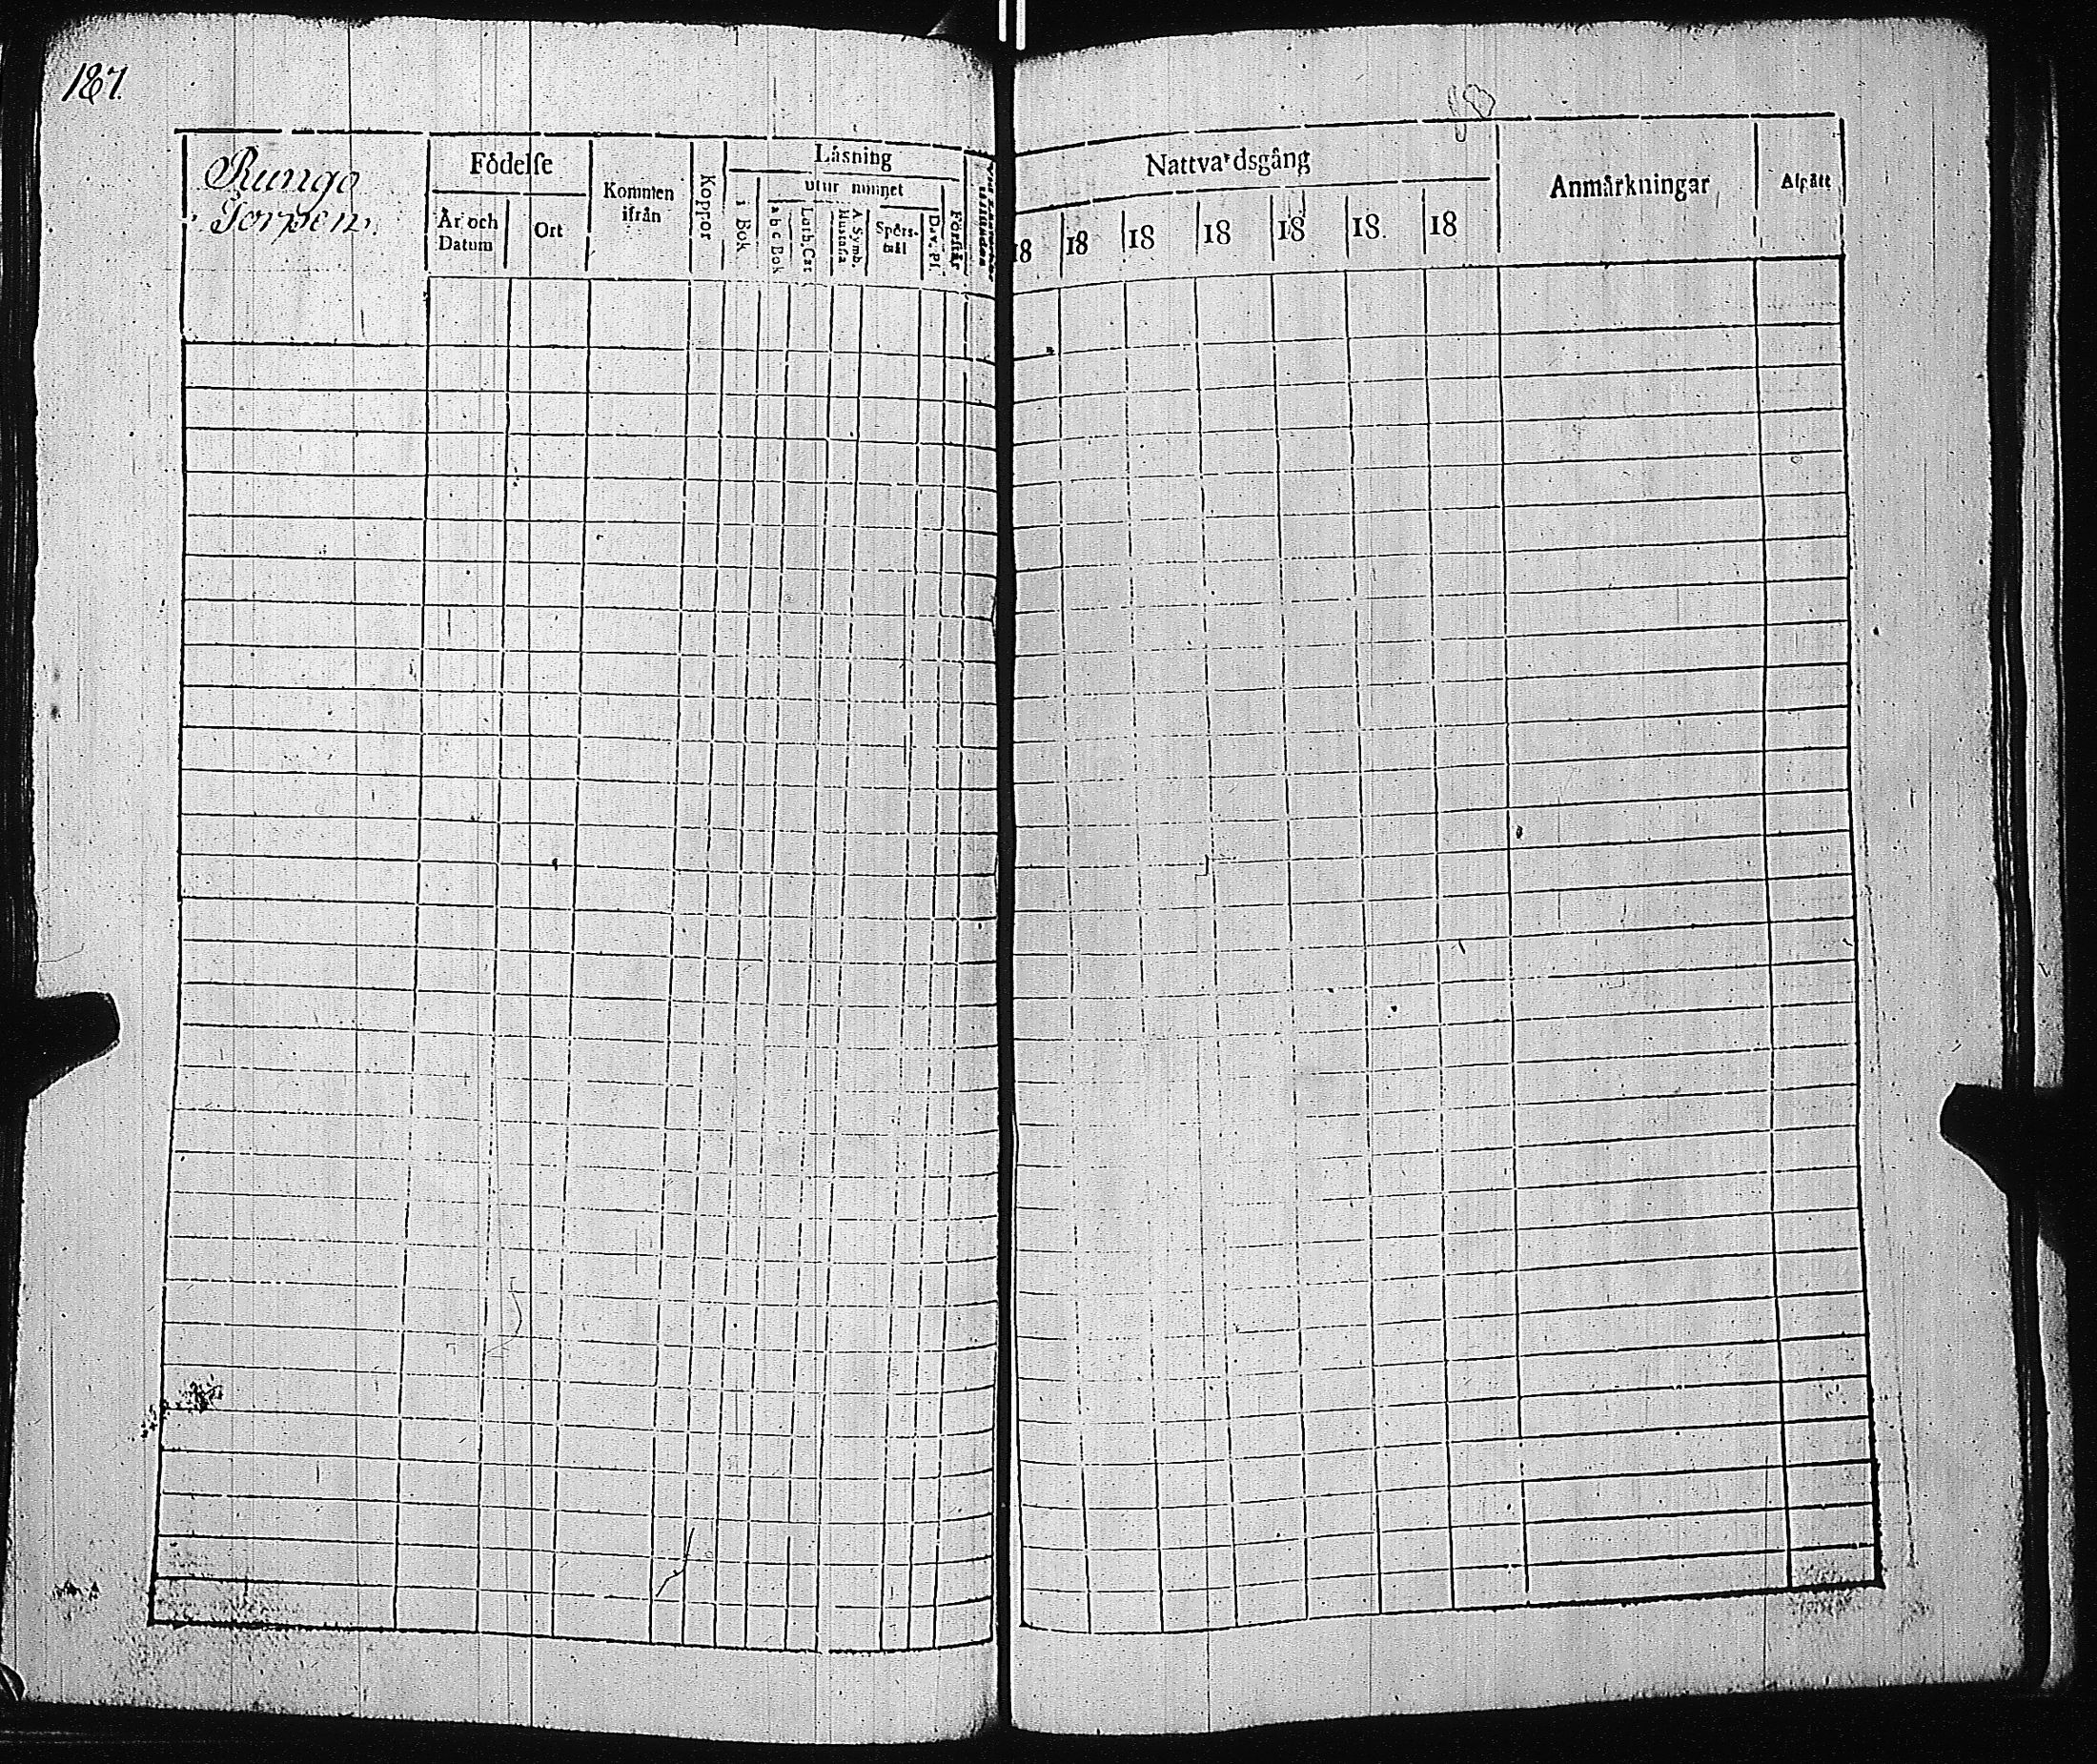 187.
Runga
Torpen.
Födelse
År och
Datum
Ort
Kommen
ifrån
Koppor
Läsning
utur minnet
i Bok
a b c Bok
Luth. Cat
A. Symb.
Hustafla
Spörs-
mål
Dav. Ps
Förstår
Nattvardsgång
18
18
18
18
18
18.
18
Anmärkningar
Afgått